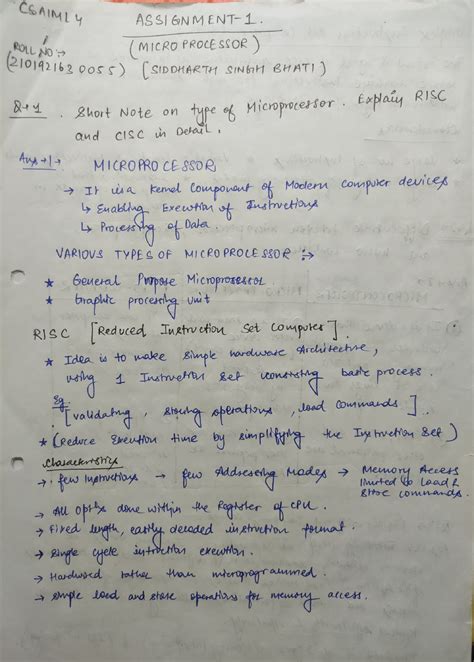 CSAIML 4
ASSIGNMENT-1.
ROLL NO :→
(MICROPROCESSOR)
(2101921630055) [SIDDHARTH SINGH BHATI)
Q→1. Short Note on type of Microprocessor. Explain RISC
and CISC in Detail.
Ans→1→ MICROPROCESSOR
→ It is a Kernel Component of Modern computer devices
↳ Enabling Execution of Instructions
↳ Processing of Data.
VARIOUS TYPES OF MICROPROCESSOR :→
★ General Propose Microprosessor
★ Graphic processing unit
RISC [Reduced Instruction Set Computer].
★ Idea is to make simple hardware Architecture,
using 1 Instruction Set consisting basic process.
Eg.
[validating, storing operations, load commands].
★ (Reduce Execution time by simplifying the Instruction Set)
Characteristics
→ few Instructions → few Addressing Modes → Memory Access
limited to Load &
store commands.
→ All done within the Register of CPU.
→ Fixed length, easily decoded instruction format.
→ Single cycle execution.
→ Hardwired rather than microprogrammed.
→ Simple load and store operations for memory access.